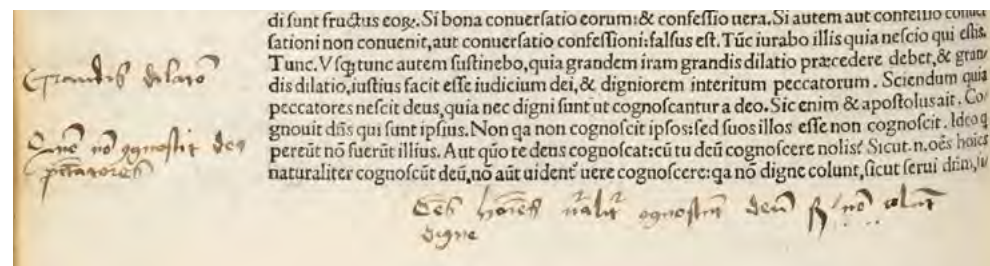 di sunt fructus eoꝝ. Si bona conuersatio eorum: & confessio uera. Si autem aut confessio conuer
sationi non conuenit, aut conuersatio confessioni: falsus est. Tūc iurabo illis quia nescio qui estis.
Tunc. Vsqꝫ tunc autem sustinebo, quia grandem iram grandis dilatio præcedere debet, & gran
dis dilatio, iustius facit esse iudicium dei, & digniorem interitum peccatorum. Sciendum quia
peccatores nescit deus, quia nec digni sunt ut cognoscantur a deo. Sic enim & apostolus ait. Co
gnouit dn̄s qui sunt ipsius. Non qa non cognoscit ipsos: sed suos illos esse non cognoscit. Ideo q
pereūt nō fuerūt illius. Aut quō te deus cognoscat: cū tu deū cognoscere nolis? Sicut .n. oēs hoīes
naturaliter cognoscūt deū, nō aūt uident᷑ uere cognoscere: qa nō digne colunt, sicut serui
Grandis dilatō
Quō nō ognoscit deus
pctātores
Oēs homīes nāliter ognoscūt deū sꝫ nō colūt
digne